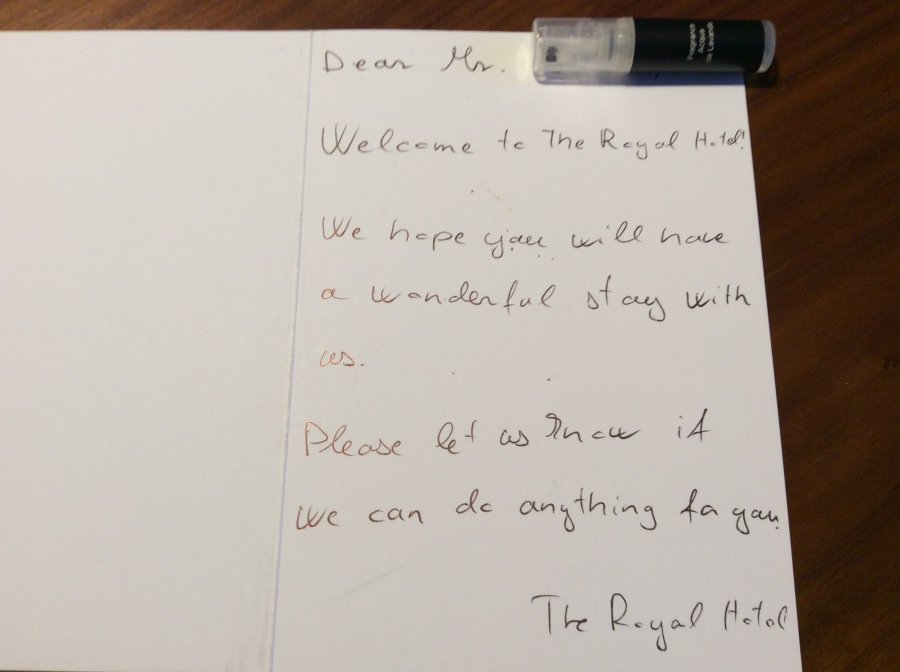 Dear Mr.
Fragrance
Acqua
de Lavanda
Welcome to The Royal Hotel!
We hope you will have
a wonderful stay with
us.
Please let us know if
we can do anything fo you
The Royal Hotel